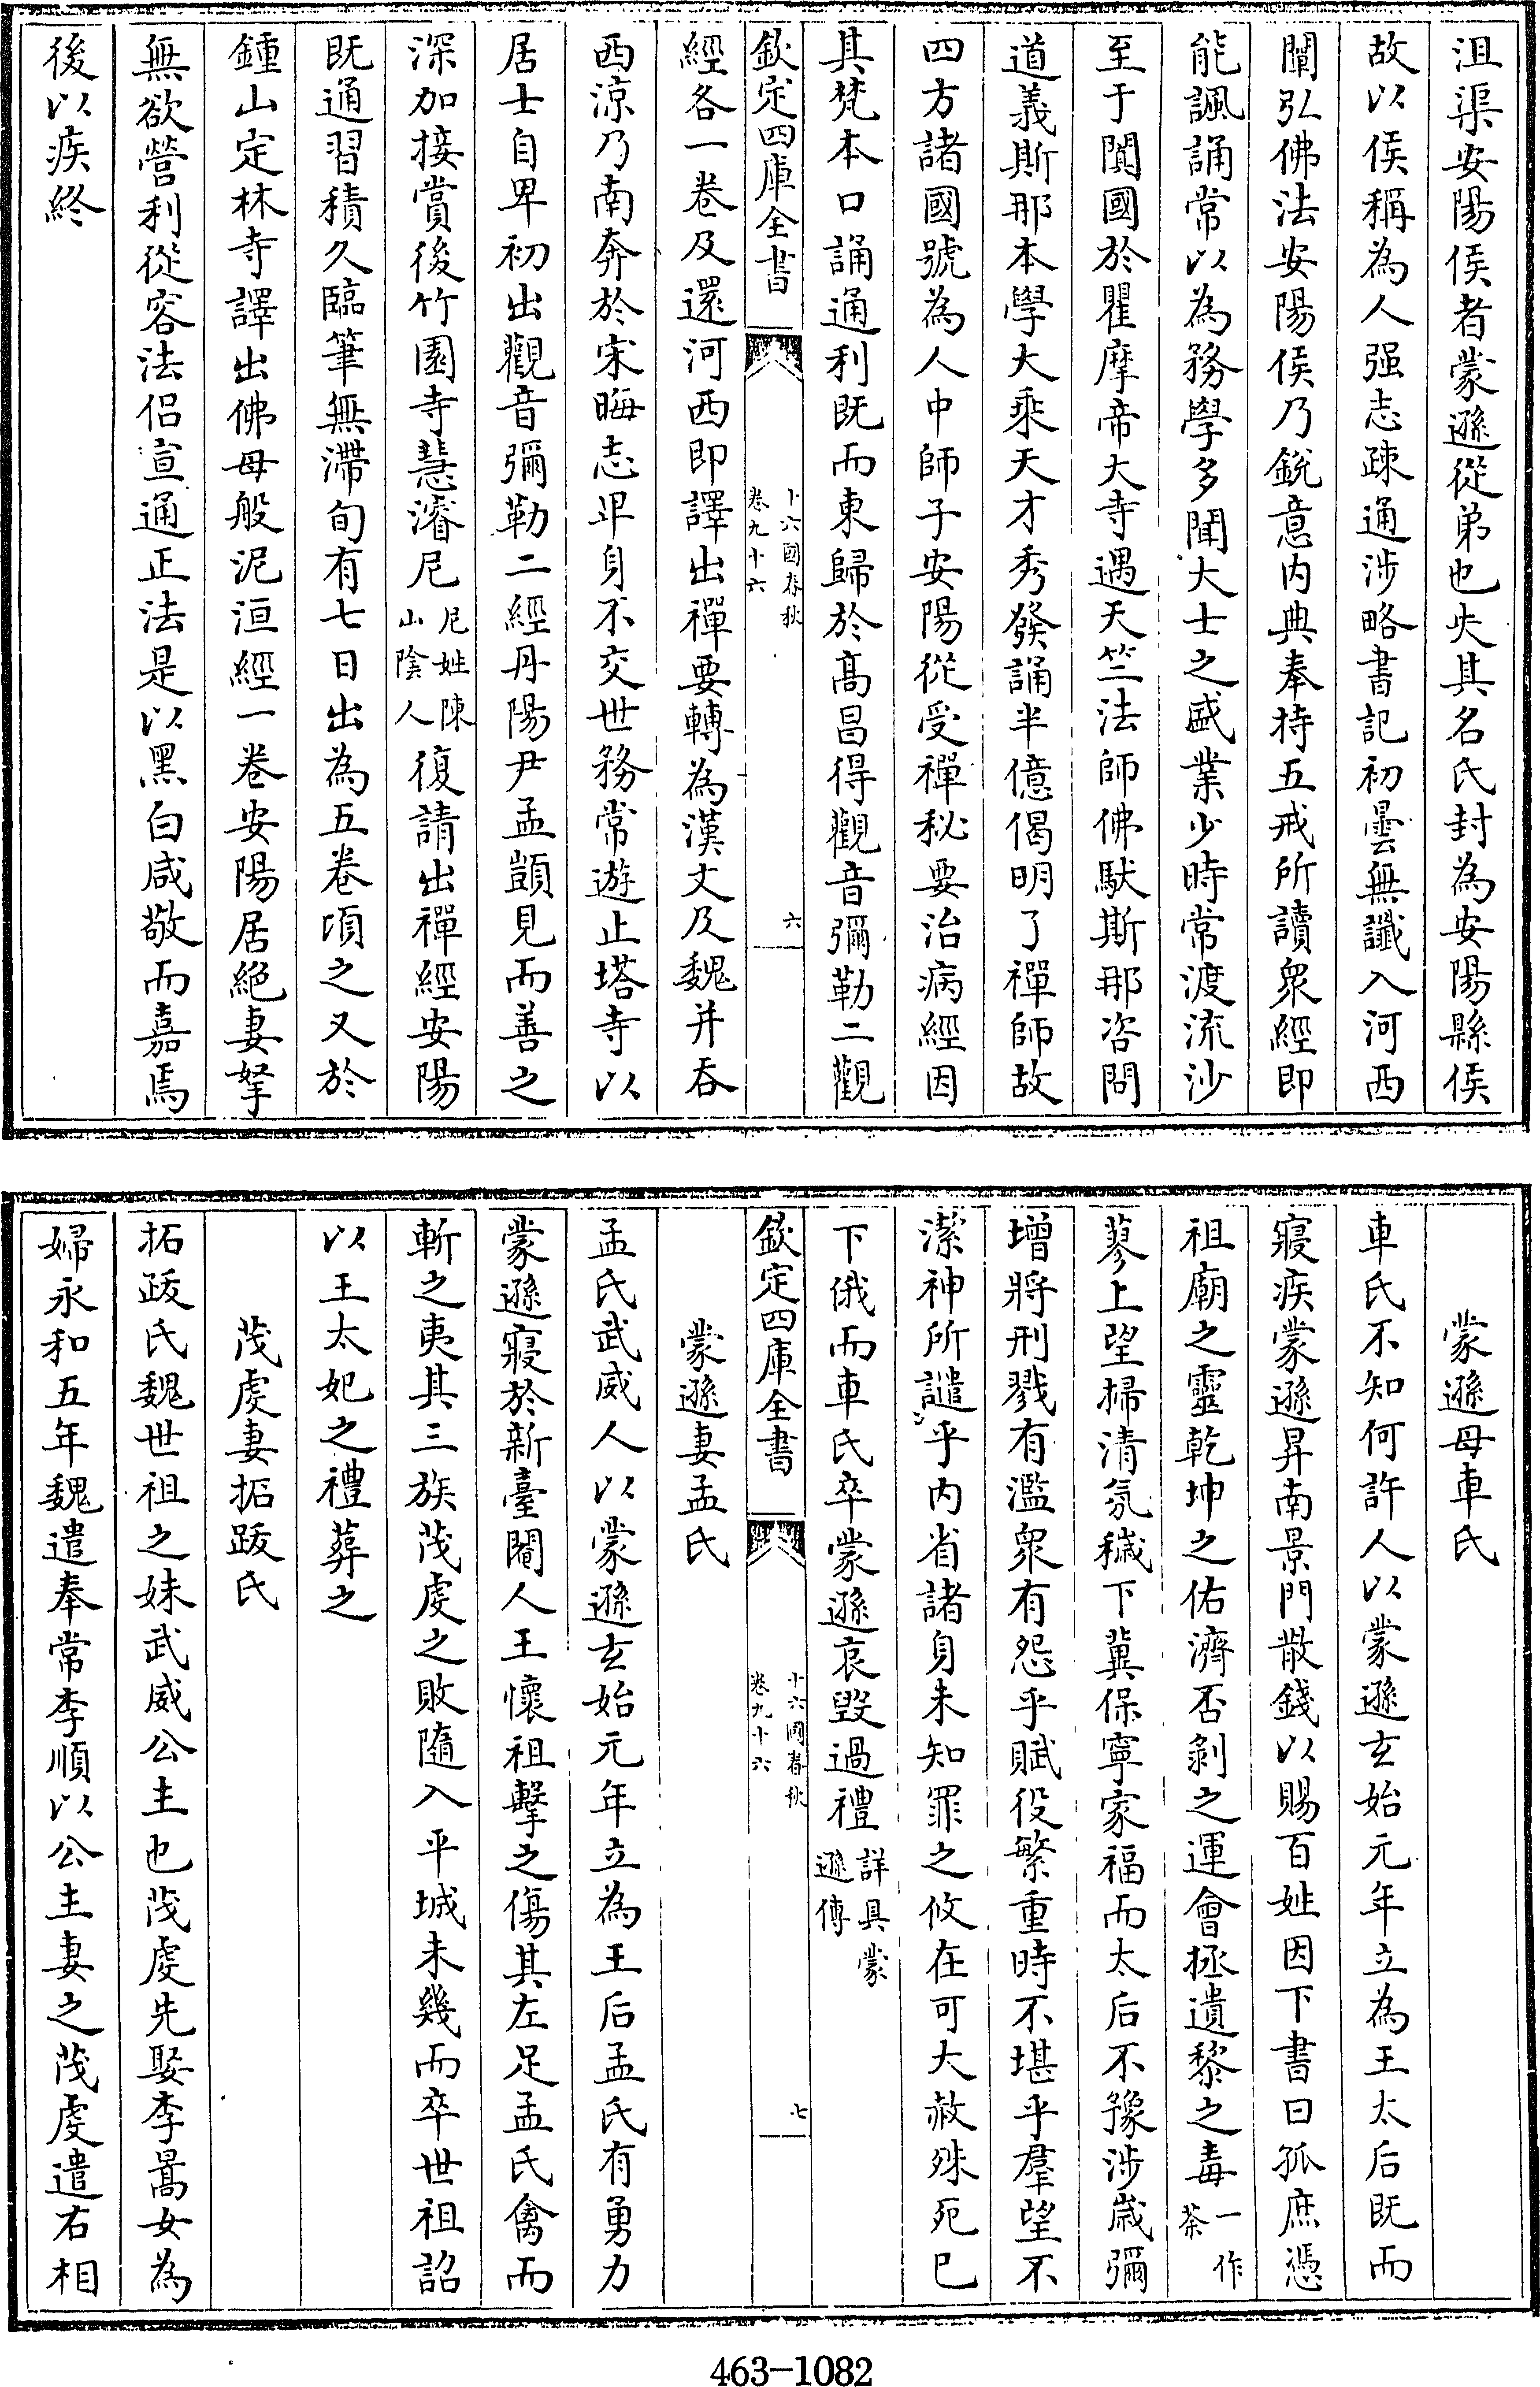 沮渠安陽侯者蒙遜從弟也失其名氏封為安陽縣侯
故以侯稱為人强志疎通涉略書記初曇無讖入河西
闡弘佛法安陽侯乃銳意内典奉持五戒所讀衆經即
能諷誦常以為務學多聞大士之盛業少時常渡流沙
至于闐國於瞿摩帝大寺遇天竺法師佛馱斯那咨問
道義斯那本學大乘天才秀發誦半億偈明了禪師故
四方諸國號為人中師子安陽從受禪秘要治病經因
其梵本口誦通利既而東歸於髙昌得觀音彌勒二觀
欽定四庫全書
十六國春秋
卷九十六
六
經各一卷及還河西即譯出禪要轉為漢文及魏并吞
西涼乃南奔於宋晦志卑身不交世務常遊止塔寺以
居士自卑初出觀音彌勒二經丹陽尹孟顗見而善之
深加接賞後竹園寺慧濬尼尼姓陳山陰人復請出禪經安陽
既通習積久臨筆無滯旬有七日出為五卷頃之又於
鍾山定林寺譯出佛母般泥洹經一卷安陽居絶妻孥
無欲營利從容法侣宣通正法是以黑白咸敬而嘉焉
後以疾終
蒙遜母車氏
車氏不知何許人以蒙遜玄始元年立為王太后既而
寢疾蒙遜昇南景門散錢以賜百姓因下書曰孤庶憑
祖廟之靈乾坤之佑濟否剝之運會拯遺黎之毒一作荼
蓼上望掃清氛穢下冀保寧家福而太后不豫涉嵗彌
增將刑戮有濫衆有怨乎賦役繁重時不堪乎羣望不
潔神所譴乎内省諸身未知罪之攸在可大赦殊死已
下俄而車氏卒蒙遜哀毀過禮詳具蒙遜傳
欽定四庫全書
十六國春秋
卷九十六
七
蒙遜妻孟氏
孟氏武威人以蒙遜玄始元年立為王后孟氏有勇力
蒙遜寢於新臺閹人王懷祖擊之傷其左足孟氏禽而
斬之夷其三族茂虔之敗隨入平城未幾而卒世祖詔
以王太妃之禮葬之
茂虔妻拓跋氏
拓跋氏魏世祖之妹武威公主也茂虔先娶李暠女為
婦永和五年魏遣奉常李順以公主妻之茂虔遣右相
463-1082